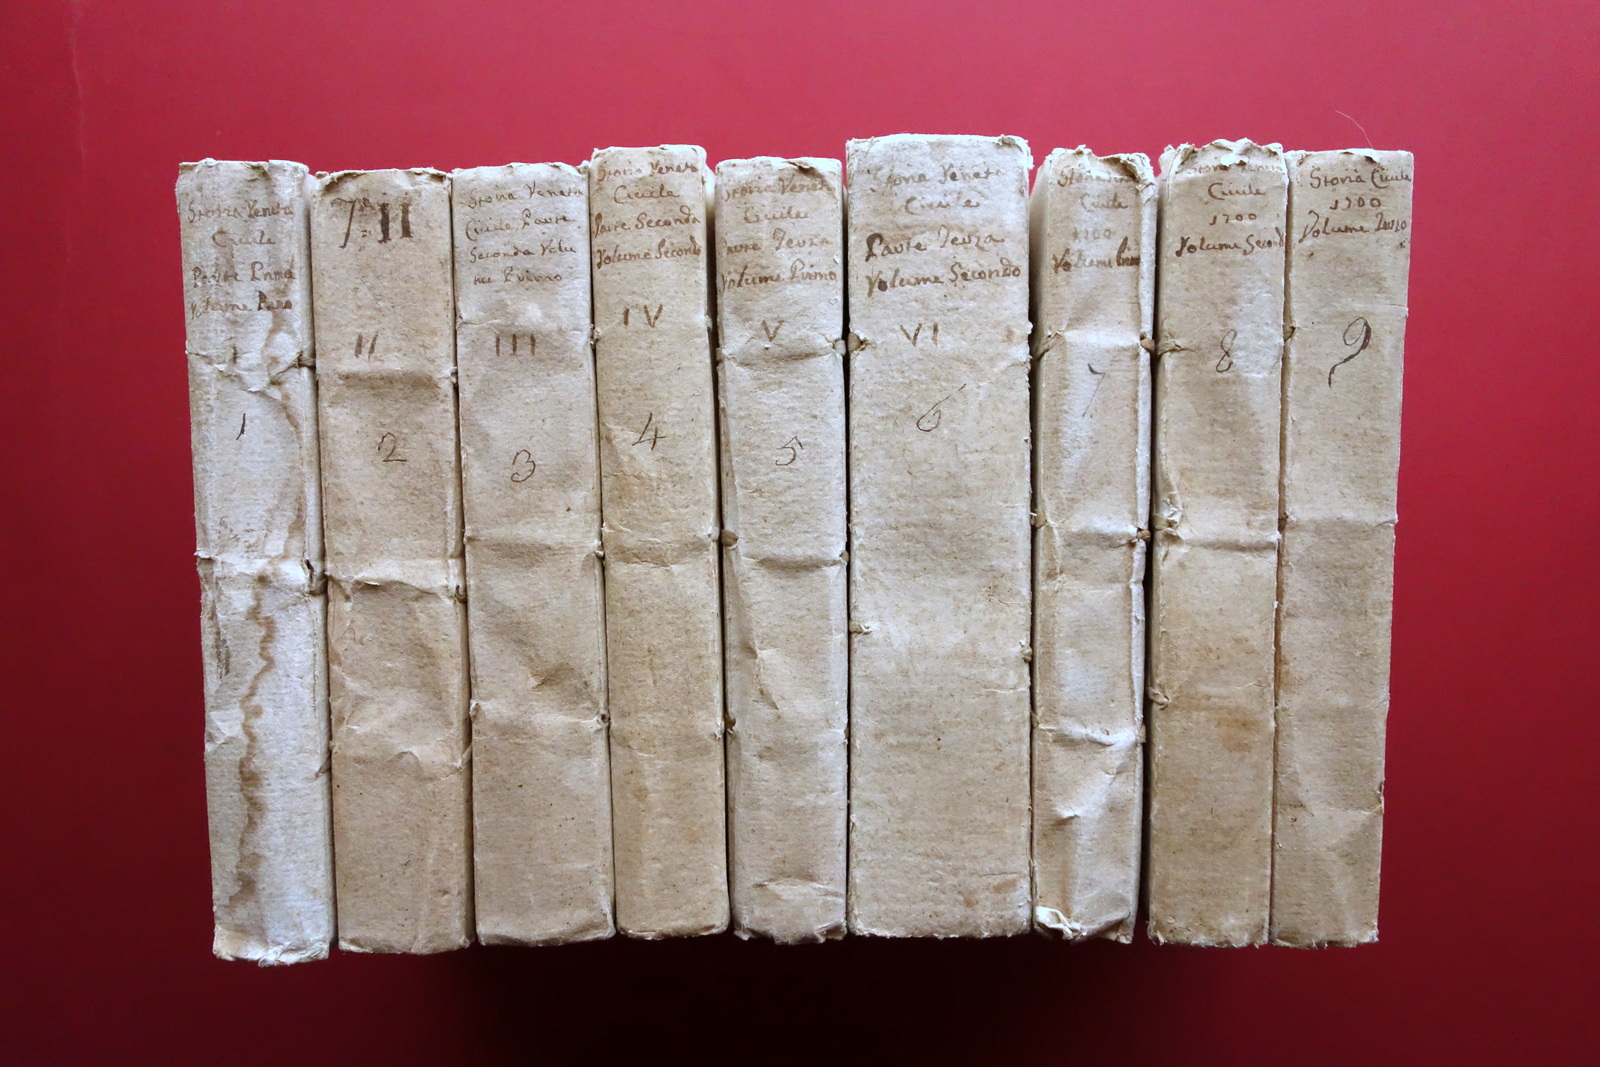 Storia Veneta
Civile
Parte Prima
Volume Pmo
I
1
T II
II
2
Storia Veneta
Civile, Parte
Seconda Volu
me Primo
III
3
Storia Veneta
Civile
Parte Seconda
Volume Secondo
IV
4
Storia Veneta
Civile
Parte Terza
Volume Primo
V
5
Storia Veneta
Civile
Parte Terza
Volume Secondo
VI
6
Civile
1700
Volume
7
Storia Veneta
Civile
1700
Volume Secondo
8
Storia Civile
1700
Volume Terzo
9